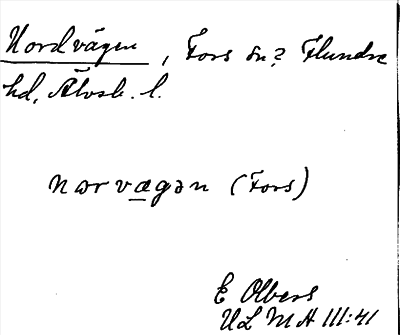 Nordvägen, Fors sn? Flundre
hd, Älvsb. l.
norvægən (Fors)
E Olbers
ULMA III:41